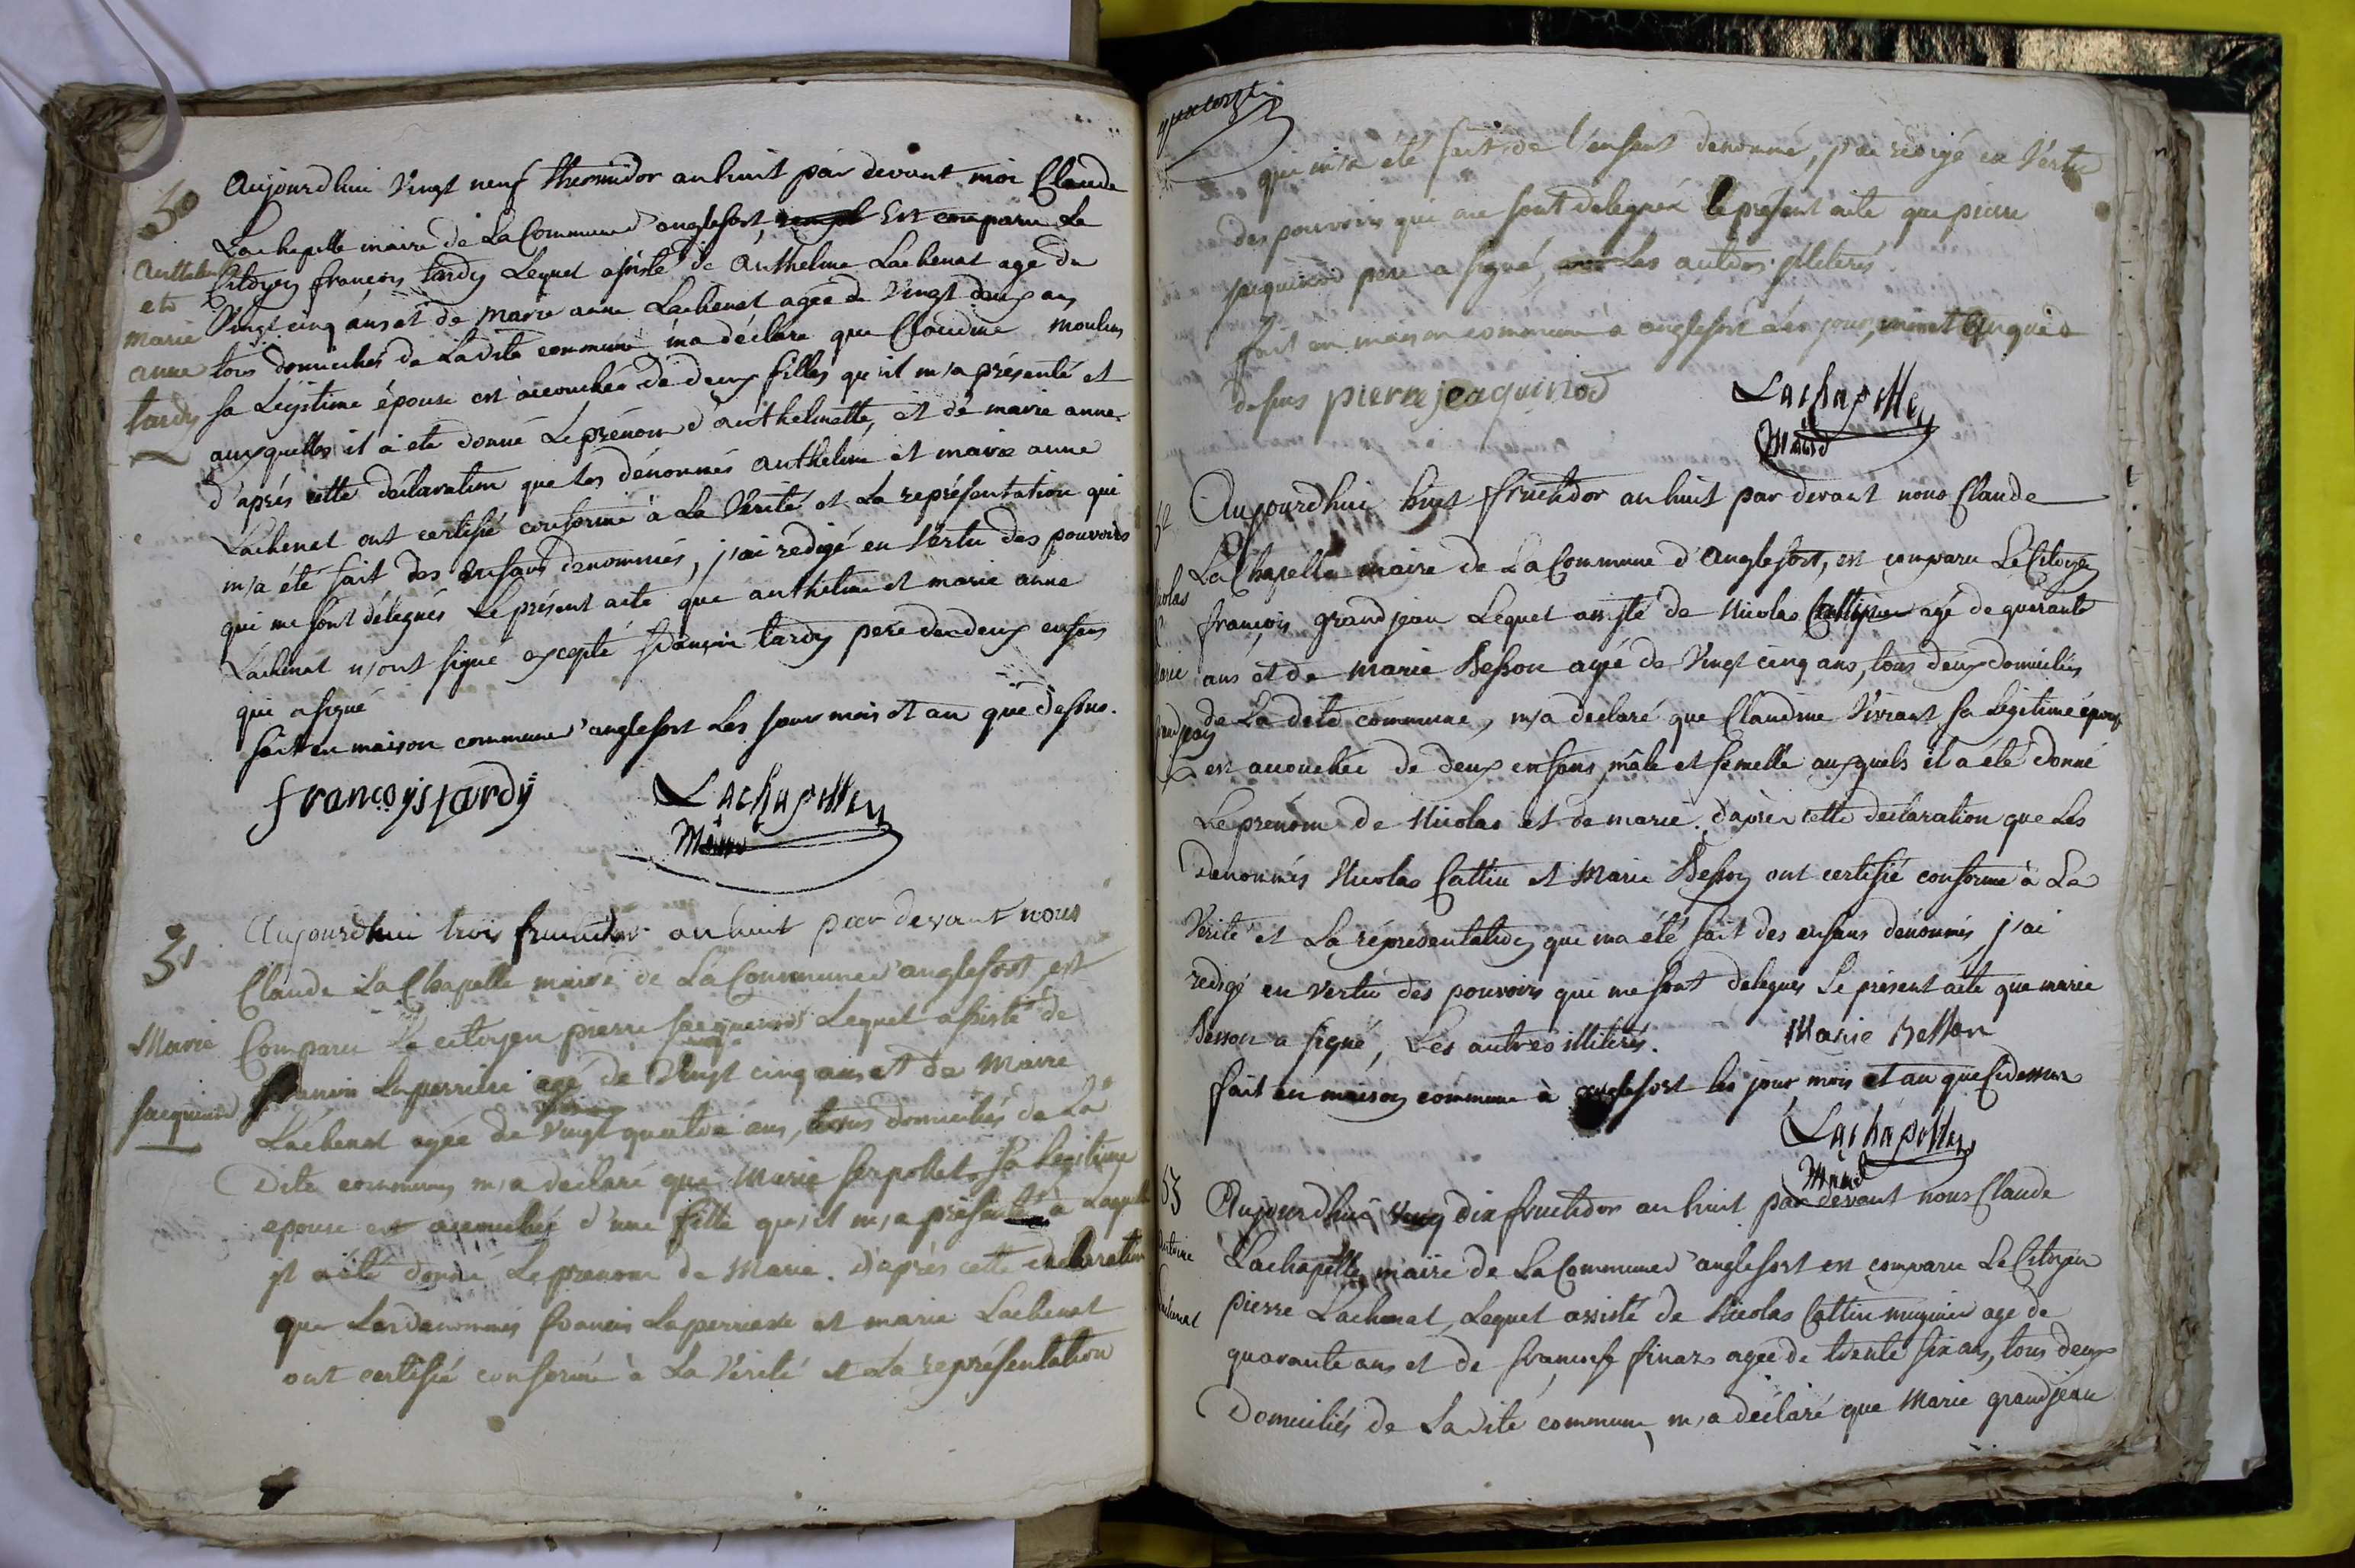 30
Aujourdhui Vingt neuf thermidor an huit par devant moi Claude
Lachapelle maire de La Commune d'anglefort, Est comparu Le
Citoyen françois tardy Lequel assisté de Anthelme Lachenat agé de
Vingt cinq ans et de marie anne Lachenat agée de Vingt deux ans
tous domiciliés de Ladite commune m'a déclaré que Claudine moulin
sa Légitime épouse est accouchée de deux filles qu'il m'a présenté et
auxquelles il a été donné Le prénom d'anthelmette, et de marie anne
d'après cette déclaration que les dénommés anthelme et marie anne
Lachenat ont certifié conforme à La Vérité et La représentation qui
m'a été fait des Enfans denommés, j'ai redigé en Vertu des pouvoirs
qui me sont délegués Le présent acte que anthelme et marie anne
Lachenat n'ont signé excepté françois tardy pere des deux enfans
qui a signé
fait en maison commune d'anglefort Les jour mois et an que dessus.
françois tardy
Lachapelle
Maire
et
Marie
anne
tardy
31
Marie
Jacquinod
Aujourdhui trois fructidor an huit par devant nous
Claude La Chapelle maire de La Commune d'anglefort est
Comparu Le citoyen pierre jacquinod Lequel assisté de
francois Laperriere agé de Vingt cinq ans et de Marie
Lachenat agée de Vingt quatre ans, tous domiciliés de La
Dite commune m'a declaré que Marie serpollet sa Légitime
epouse est accouchée d'une fille qu'il m'a présenté à Laquelle
il a été donné Le prenom de Marie. D'après cette declaration
que Les denommés francois Laperriere et marie Lachenat
ont certifié conforme à La Vérité et La représentation
quatorze
qui m'a été fait de l'enfant denommé, j'ai redigé en Vertu
des pouvoirs qui me sont delegués le présent acte que pierre
jacquinod pere a signé, Les autres illiterés
fait en maison commune à anglefort Les jour, mois et an que
dessus pierre jaquinod
Lachapelle
Maire
32
Nicolas
&
Marie
grandjean
Aujourdhui huit fructidor an huit par devant nous Claude
LaChapelle maire de La Commune d'Anglefort, est comparu Le Citoyen
françois grandjean Lequel assisté de Nicolas agé de quarante
ans et de marie Besson agée de Vingt cinq ans, tous deux domiciliés
de La dite commune, m'a declaré que Claudine Vivrant sa Légitime épouse
est accouchée de deux enfans mâle et femelle auxquels il a été donné
Le prenom de Nicolas et de marie. d'après cette declaration que Les
Denommés Nicolas Cattin et Marie Besson ont certifié conforme à La
Vérité et La répresentation qui ma été fait des enfans dénommés j'ai
redigé en vertu des pouvoirs qui me sont delegués Le présent acte que marie
Besson a signé, Les autres illiterés. Marie Besson
fait en maison commune à anglefort les jour mois et an que cidessus
Lachapelle
Maire
33
Antoine
Lachenat
Aujourdhui dix fructidor an huit par devant nous Claude
Lachapelle maire de La Commune d'anglefort est comparu Le Citoyen
pierre Lachenat, Lequel assisté de Nicolas Cattin munier agé de
quarante ans et de francoise finaz agée de trente six ans, tous deux
Domiciliés de La dite commune, m'a déclaré que Marie grandjean